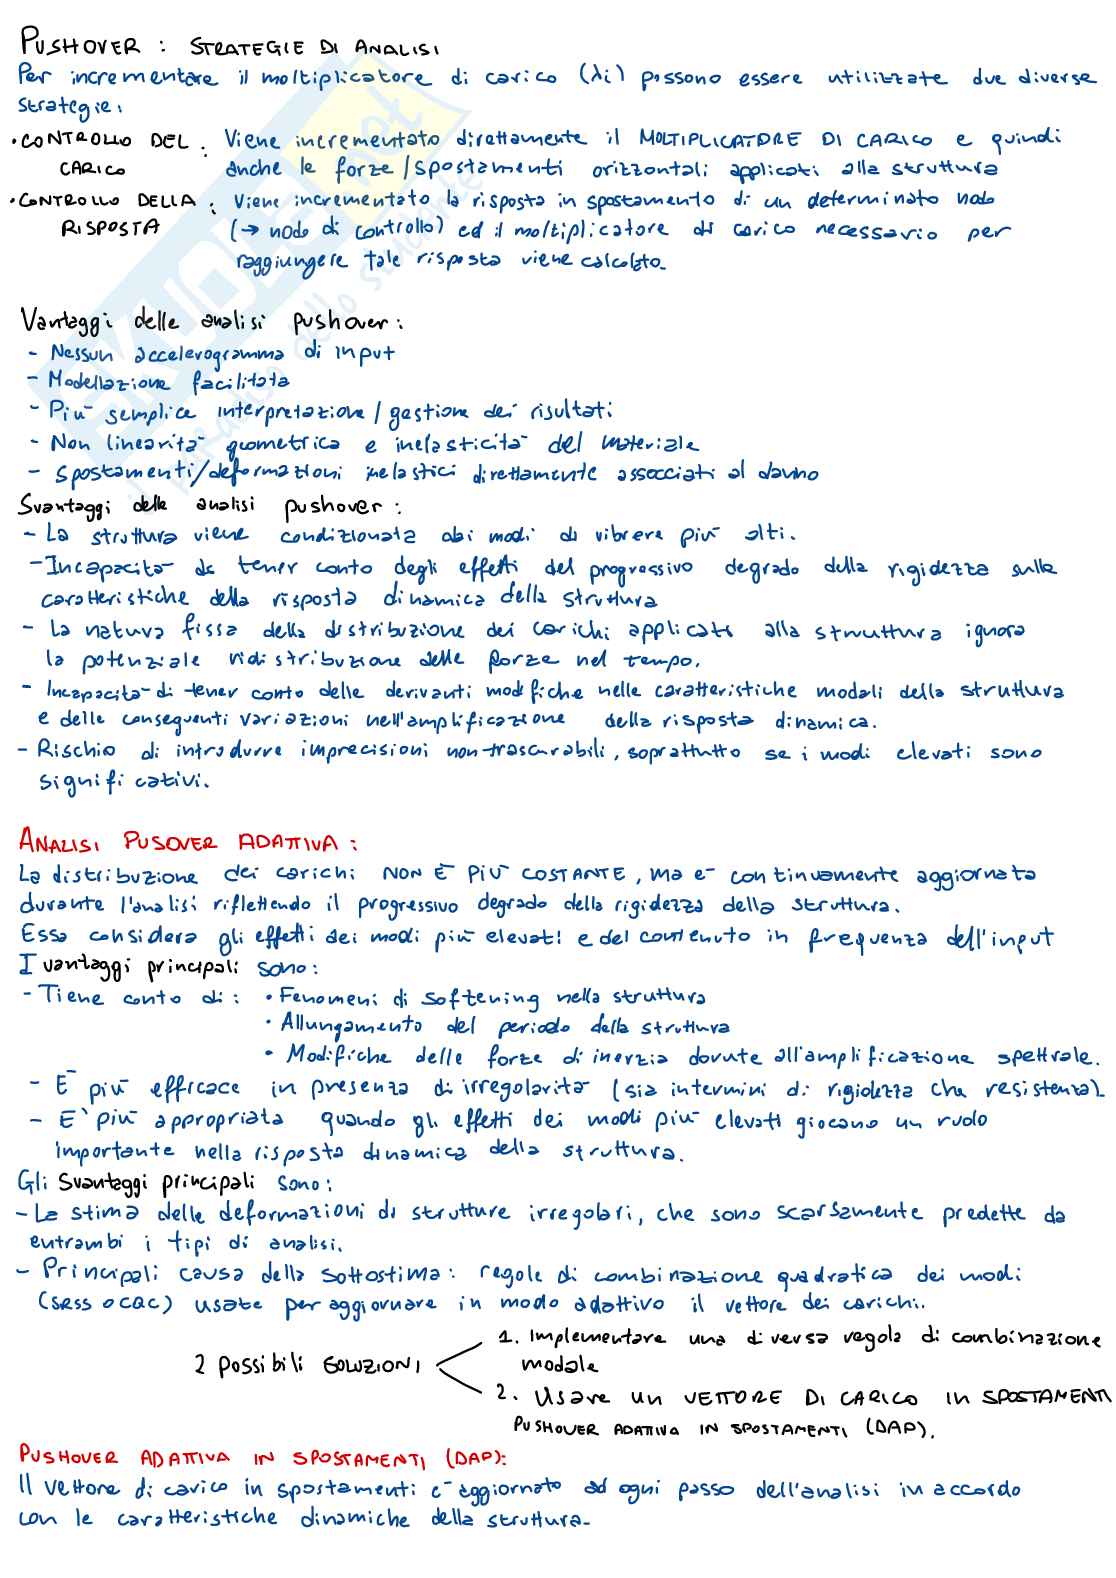 PUSHOVER : STRATEGIE DI ANALISI
Per incrementare il moltiplicatore di carico (λi) possono essere utilizzate due diverse
strategie:
• CONTROLLO DEL CARICO : Viene incrementato direttamente il MOLTIPLICATORE DI CARICO e quindi
anche le forze/spostamenti orizzontali applicati alla struttura
• CONTROLLO DELLA RISPOSTA : Viene incrementato la risposta in spostamento di un determinato nodo
(→ nodo di controllo) ed il moltiplicatore di carico necessario per
raggiungere tale risposta viene calcolato.
Vantaggi delle analisi pushover:
- Nessun accelerogramma di input
- Modellazione facilitata
- Più semplice interpretazione/gestione dei risultati
- Non linearità geometrica e inelasticità del materiale
- Spostamenti/deformazioni inelastici direttamente associati al danno
Svantaggi delle analisi pushover:
- La struttura viene condizionata dai modi di vibrare più alti.
- Incapacità di tener conto degli effetti del progressivo degrado della rigidezza sulle
caratteristiche della risposta dinamica della struttura
- La natura fissa della distribuzione dei carichi applicati alla struttura ignora
la potenziale ridistribuzione delle forze nel tempo.
- Incapacità di tener conto delle derivanti modifiche nelle caratteristiche modali della struttura
e delle conseguenti variazioni nell'amplificazione della risposta dinamica.
- Rischio di introdurre imprecisioni non trascurabili, soprattutto se i modi elevati sono
significativi.
ANALISI PUSOVER ADATTIVA :
La distribuzione dei carichi NON È PIÙ COSTANTE, ma è continuamente aggiornata
durante l'analisi riflettendo il progressivo degrado della rigidezza della struttura.
Essa considera gli effetti dei modi più elevati e del contenuto in frequenza dell'input
I vantaggi principali sono:
- Tiene conto di: • Fenomeni di softening nella struttura
• Allungamento del periodo della struttura
• Modifiche delle forze di inerzia dovute all'amplificazione spettrale.
- È più efficace in presenza di irregolarità (sia in termini di rigidezza che resistenza).
- E' più appropriata quando gli effetti dei modi più elevati giocano un ruolo
importante nella risposta dinamica della struttura.
Gli svantaggi principali sono:
- La stima delle deformazioni di strutture irregolari, che sono scarsamente predette da
entrambi i tipi di analisi.
- Principali causa della sottostima: regole di combinazione quadratica dei modi
(SRSS o CQC) usate per aggiornare in modo adattivo il vettore dei carichi.
2 possibili SOLUZIONI
1. Implementare una diversa regola di combinazione
modale
2. Usare un VETTORE DI CARICO IN SPOSTAMENTI
PUSHOVER ADATTIVA IN SPOSTAMENTI (DAP).
PUSHOVER ADATTIVA IN SPOSTAMENTI (DAP):
Il vettore di carico in spostamenti è aggiornato ad ogni passo dell'analisi in accordo
con le caratteristiche dinamiche della struttura.